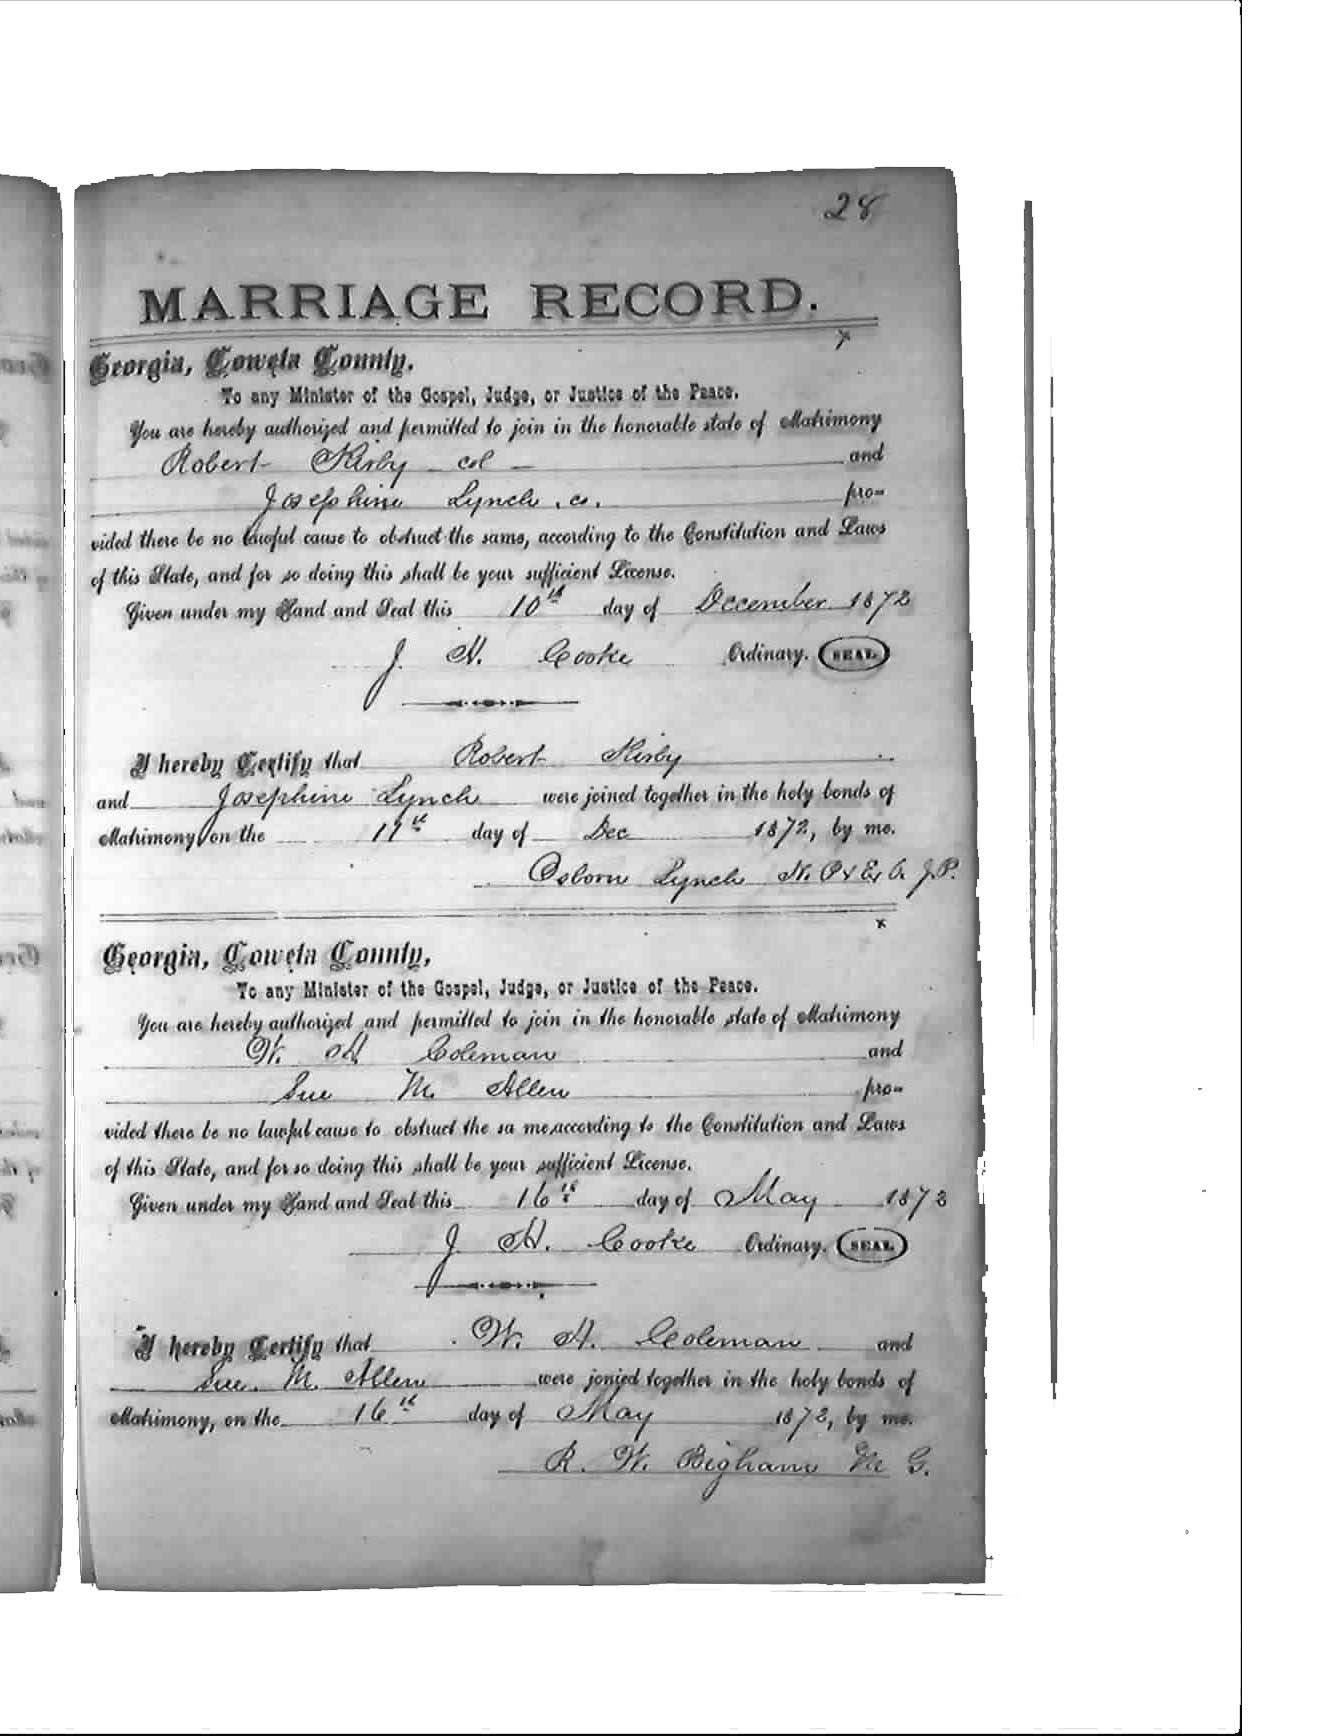 28
MARRIAGE RECORD.
x
Georgia, Coweta County.
To any Minister of the Gospel, Judge, or Justice of the Peace.
You are hereby authorized and permitted to join in the honorable state of Matrimony
Robert Kirby col and
Josephine Lynch . co. pro-
vided there be no lawful cause to obstruct the same, according to the Constitution and Laws
of this State, and for so doing this shall be your sufficient License.
Given under my Hand and Seal this 10th day of December 1872
J. H. Cooke Ordinary. SEAL.
I hereby Certify that Robert Kirby
and Josephine Lynch were joined together in the holy bonds of
Matrimony on the day of Dec 1872, by me.
Osborn Lynch N. P. & Ex O. J.P.
x
Georgia, Coweta County,
To any Minister of the Gospel, Judge, or Justice of the Peace.
You are hereby authorized and permitted to join in the honorable state of Matrimony
W. H Coleman and
Sue M. Allen pro-
vided there be no lawful cause to obstruct the sa me,according to the Constitution and Laws
of this State, and for so doing this shall be your sufficient License.
Given under my Hand and Seal this 16th day of May 1873
J H. Cooke Ordinary. SEAL.
I hereby Certify that W. H. Coleman and
Sue. M. Allen were jonied together in the holy bonds of
Matrimony, on the 16th day of May by me.
R. W. Bigham M G.